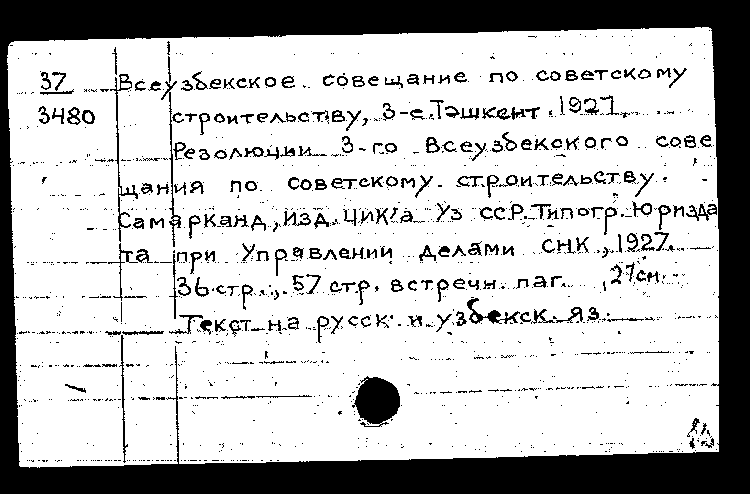 37 Всеузбекское совещание по советскому
3480 строительству, 3-е. Ташкент. 1927.
Резолюции 3-го Всеузбекского сове
щания по советскому строительству.
Самарканд, изд. ЦИК'а Уз ССР. Типогр. Юризда
та при Управлении делами СНК, 1927.
36 стр., 57 стр. встречн. паг. , 27 см.
Текст на русск. и узбекск. яз.